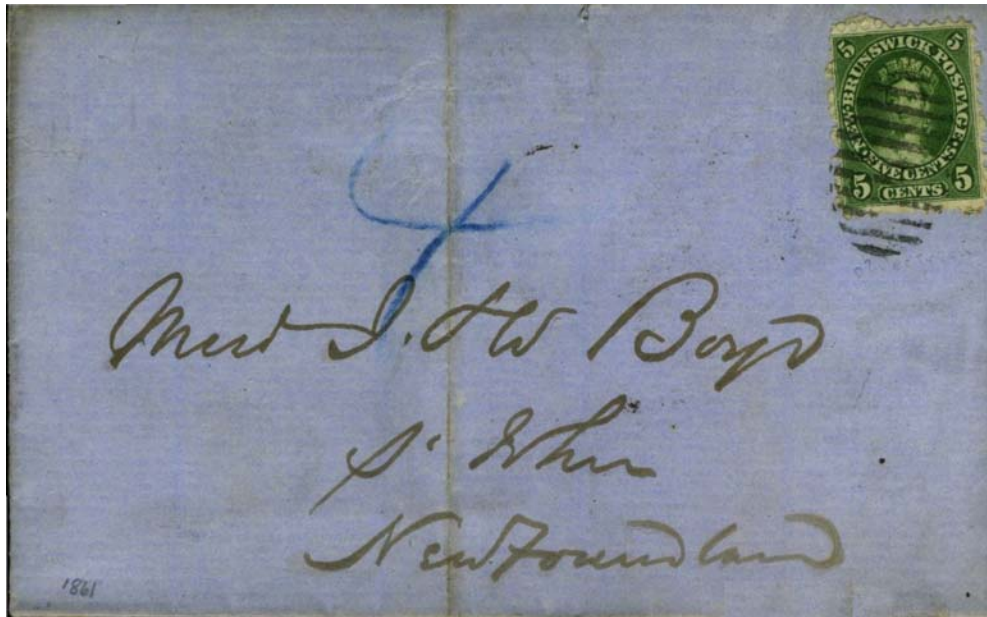 5 5
NEW·BRUNSWICK POSTAGE·
FIVE CENTS
5 CENTS 5
4
Mess J. & W Boyd
St Johns
Newfoundland
1861